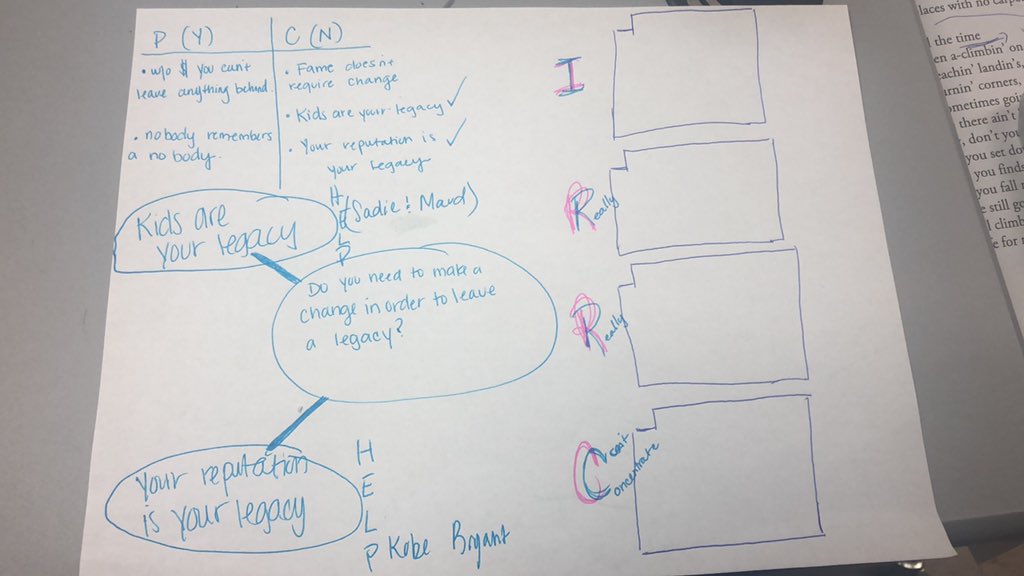 P (Y)
• w/o $ you can't
leave anything behind.
• nobody remembers
a nobody.
C (N)
• Fame doesn't
require change
• Kids are your legacy ✓
• Your reputation is ✓
your legacy
Kids are
your legacy
H
E
L
P
(Sadie! Maud)
Do you need to make a
change in order to leave
a legacy?
Your reputation
is your legacy
H
E
L
P Kobe Bryant
I
Really
Really
Concentrate
laces with no
the time
en a-climbin' on,
eachin' landin's,
urnin' corners,
ometimes
there ain't
, don't you
you set do
you finds
you fall
still go
climb
e for